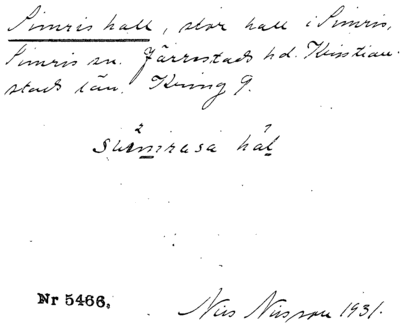 Simris hall, stor hall i Simris,
Simris sn. Järrestads hd. Kristian-
stads län. Kring 9.
Nr 5466.
Nils Nilsson 1931.